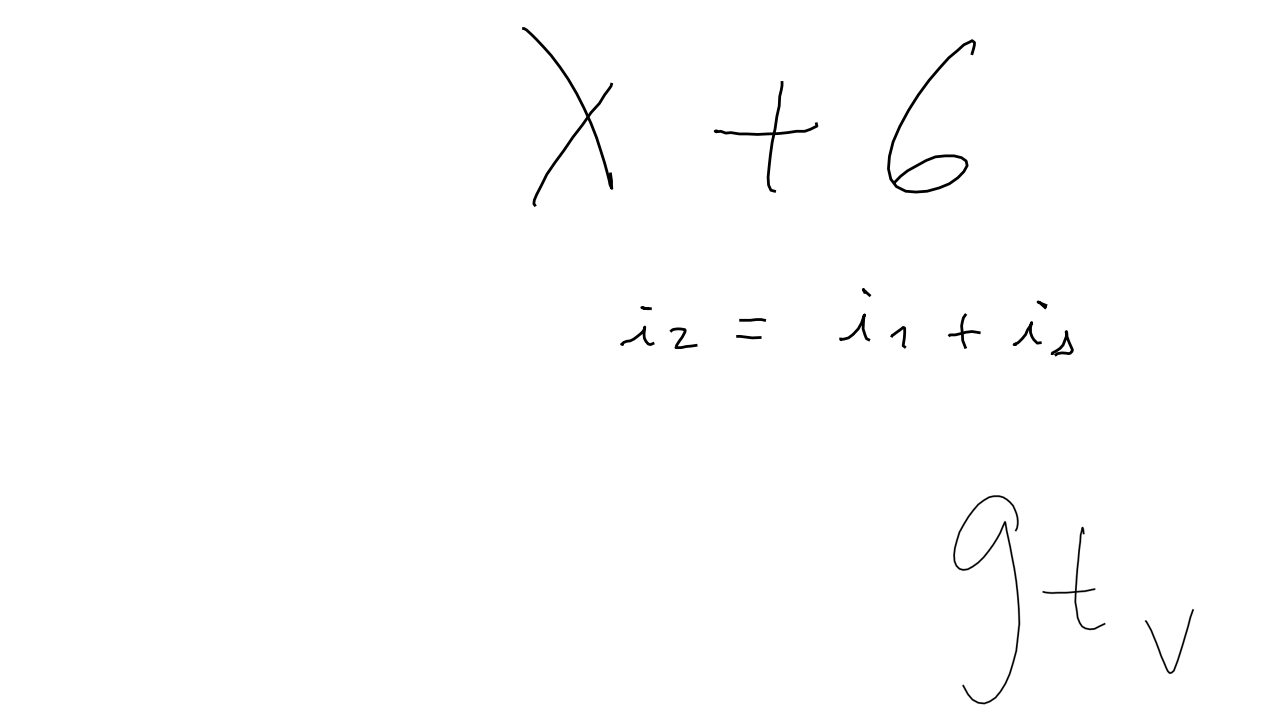 x + 6
i₂ = i₁ + iₛ
g t_v